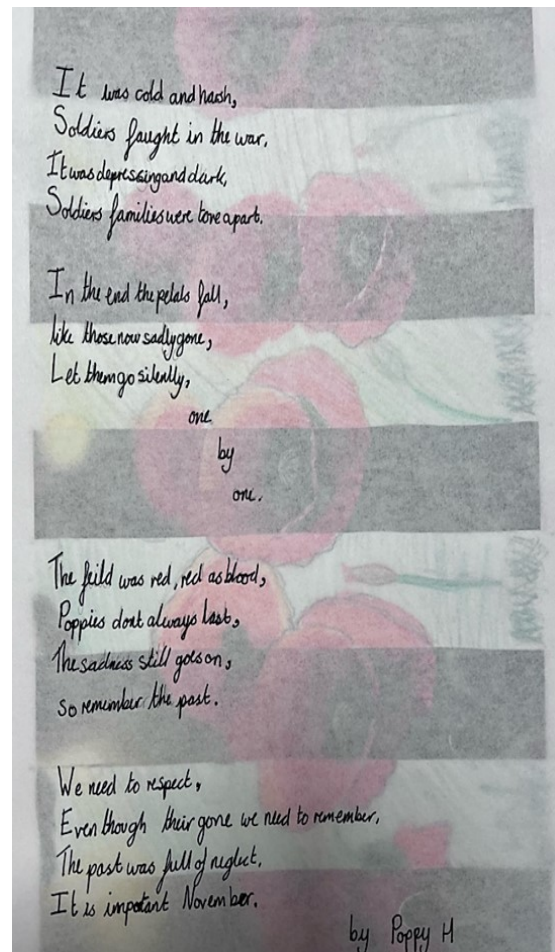 It was cold and harsh,
Soldiers faught in the war,
It was depressing and dark,
Soldiers families were tore apart.
In the end the petals fall,
like those now sadly gone,
Let them go silently,
one
by
one.
The feild was red, red as blood,
Poppies dont always last,
The sadness still goes on,
so remember the past.
We need to respect,
Even though their gone we need to remember,
The past was full of neglect,
It is impotant November.
by Poppy H